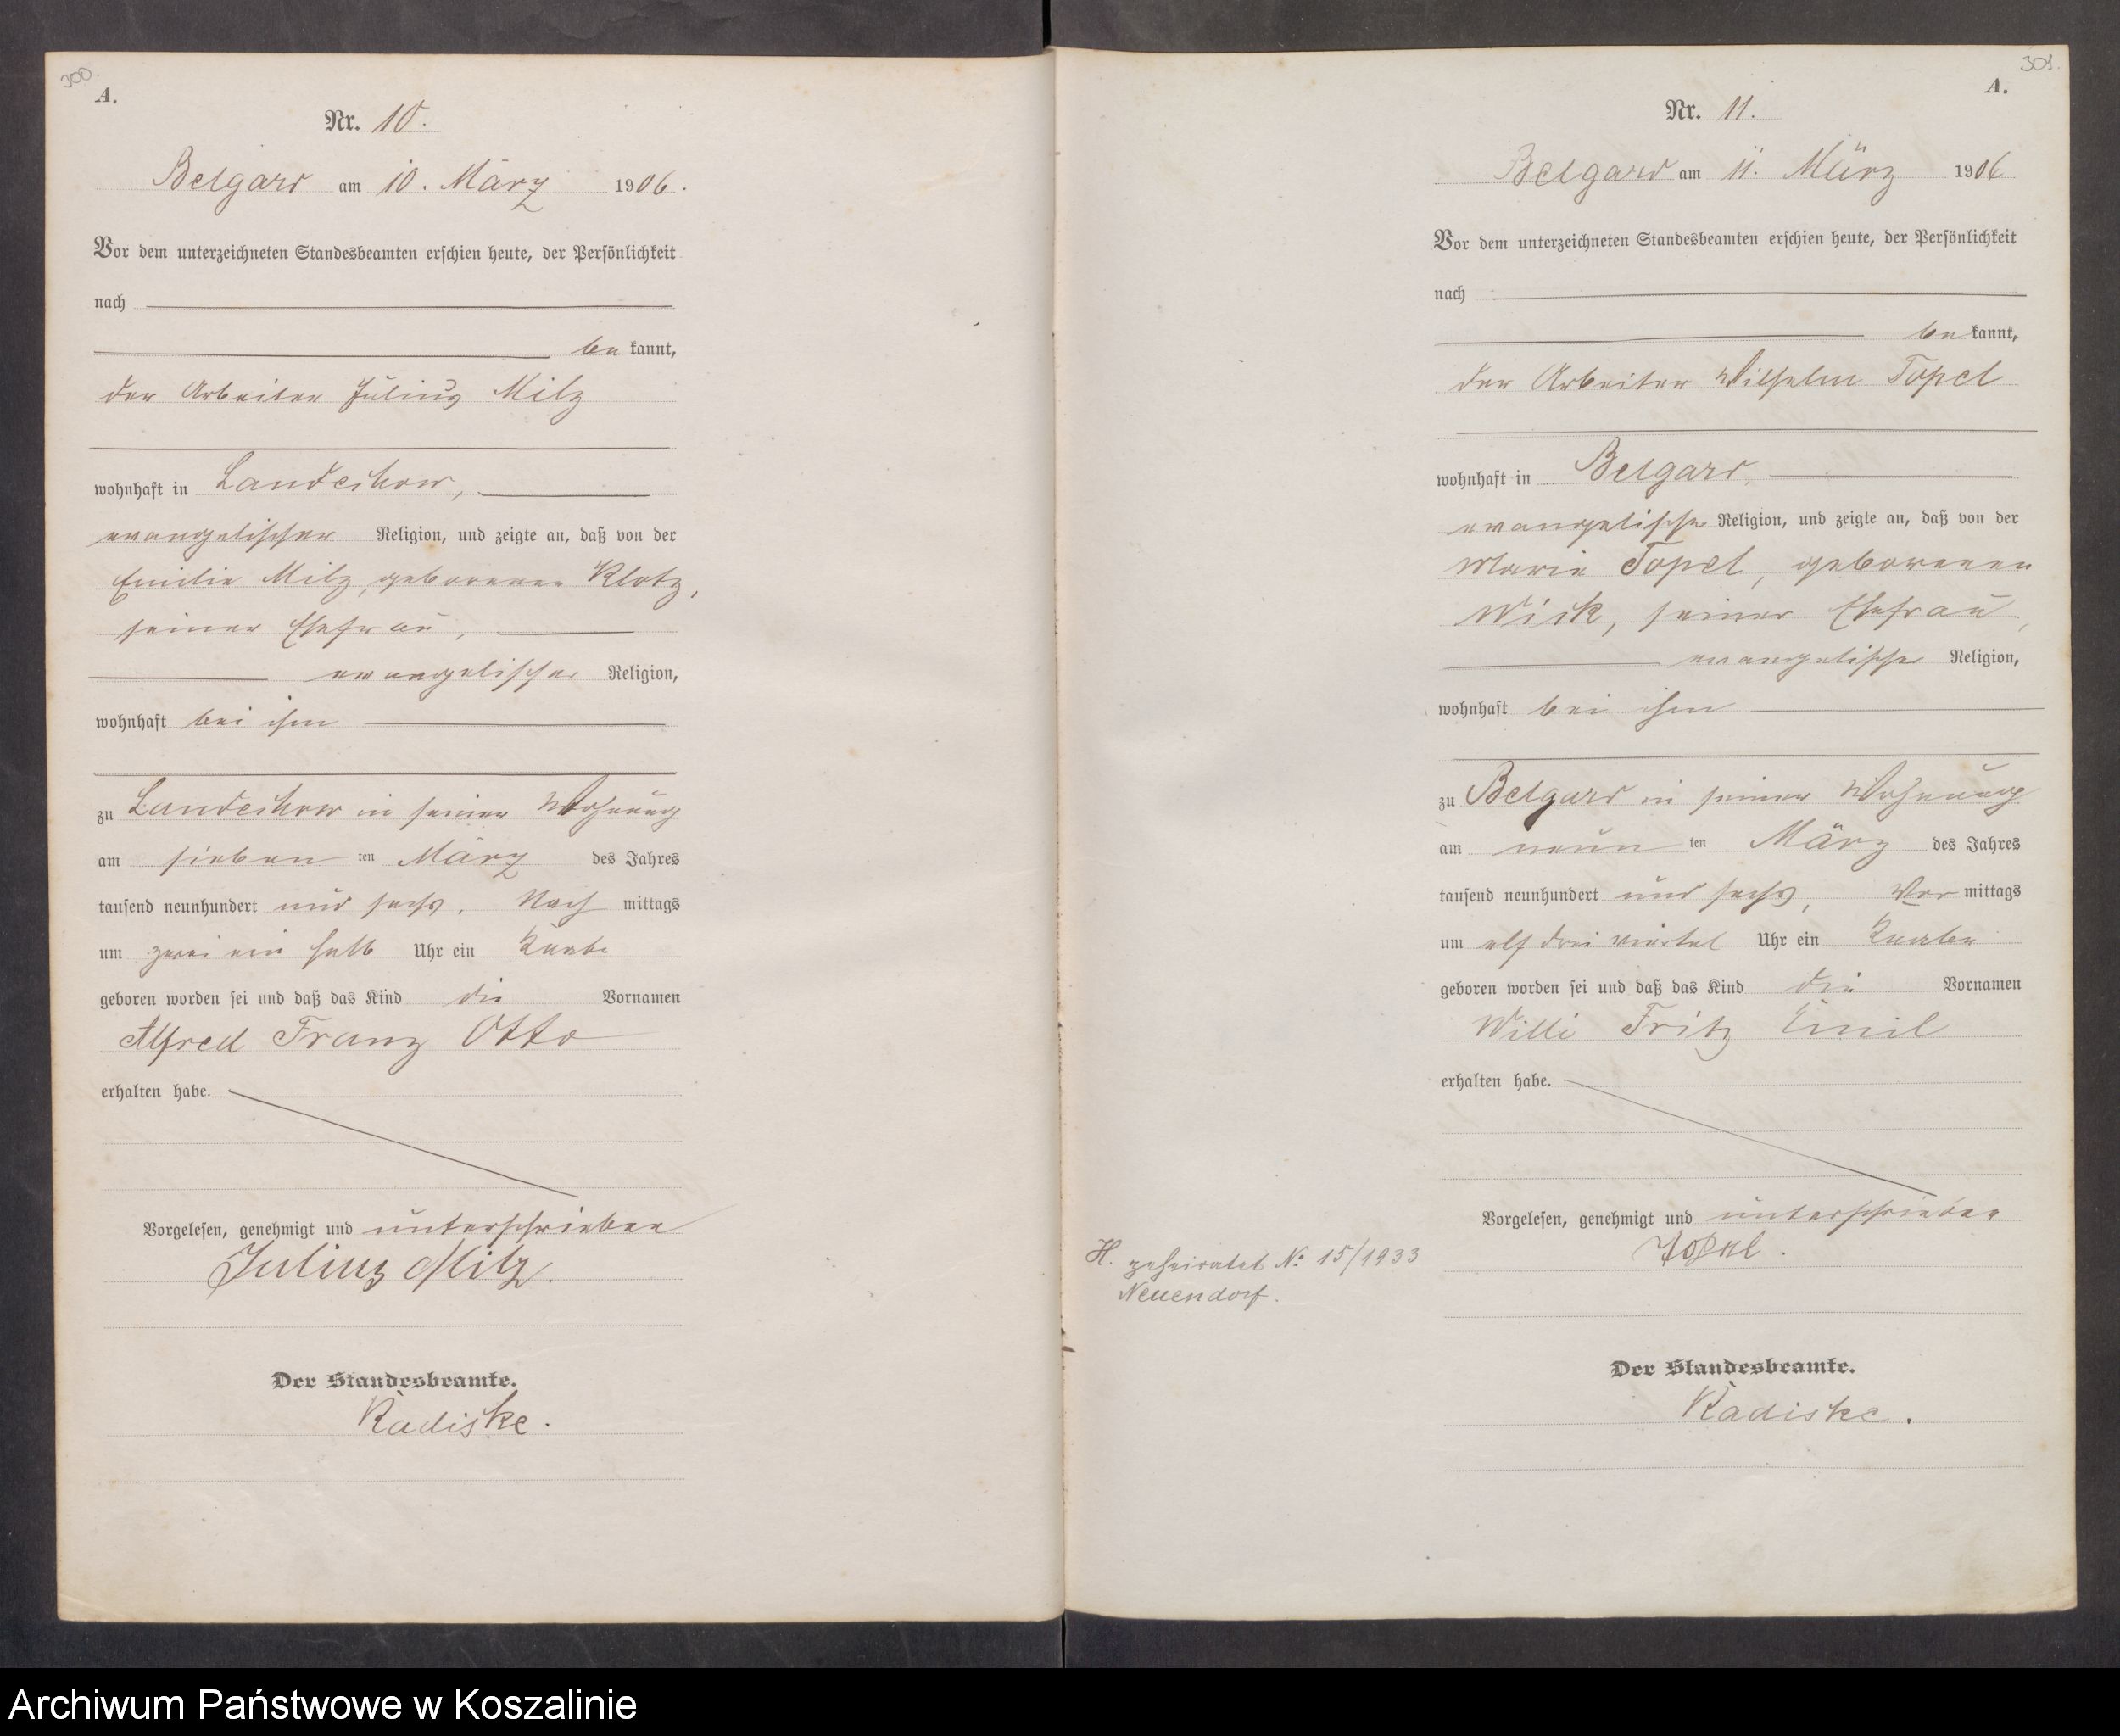 300.
A.
Nr. 10.
Belgard am 10. März 1906.
Vor dem unterzeichneten Standesbeamten erschien heute, der Persönlichkeit
nach
be kannt,
der Arbeiter Julius Milz
wohnhaft in Landechow,
evangelischer Religion, und zeigte an, daß von der
Emilie Milz, geborenen Klotz,
seiner Ehefrau,
evangelischer Religion,
wohnhaft bei ihm
zu Landechow in seiner Wohnung
am sieben ten März des Jahres
tausend neunhundert und sechs, Nach mittags
um zwei ein halb Uhr ein Knabe
geboren worden sei und daß das Kind die Vornamen
Alfred Franz Otto
erhalten habe.
Vorgelesen, genehmigt und unterschrieben
Julius Milz.
Der Standesbeamte.
Radiske.
301.
A.
Nr. 11.
Belgard am 11. März 1906
Vor dem unterzeichneten Standesbeamten erschien heute, der Persönlichkeit
nach
be kannt,
der Arbeiter Wilhelm Topel
wohnhaft in Belgard,
evangelischer Religion, und zeigte an, daß von der
Marie Topel, geborenen
Wick, seiner Ehefrau,
evangelischer Religion,
wohnhaft bei ihm
zu Belgard in seiner Wohnung
am neun ten März des Jahres
tausend neunhundert und sechs, Vor mittags
um elf drei viertel Uhr ein Knabe
geboren worden sei und daß das Kind die Vornamen
Willi Fritz Emil
erhalten habe.
Vorgelesen, genehmigt und unterschrieben
Topel.
H. geheiratet No 15/1933
Neuendorf.
Der Standesbeamte.
Radiske.
Archiwum Państwowe w Koszalinie